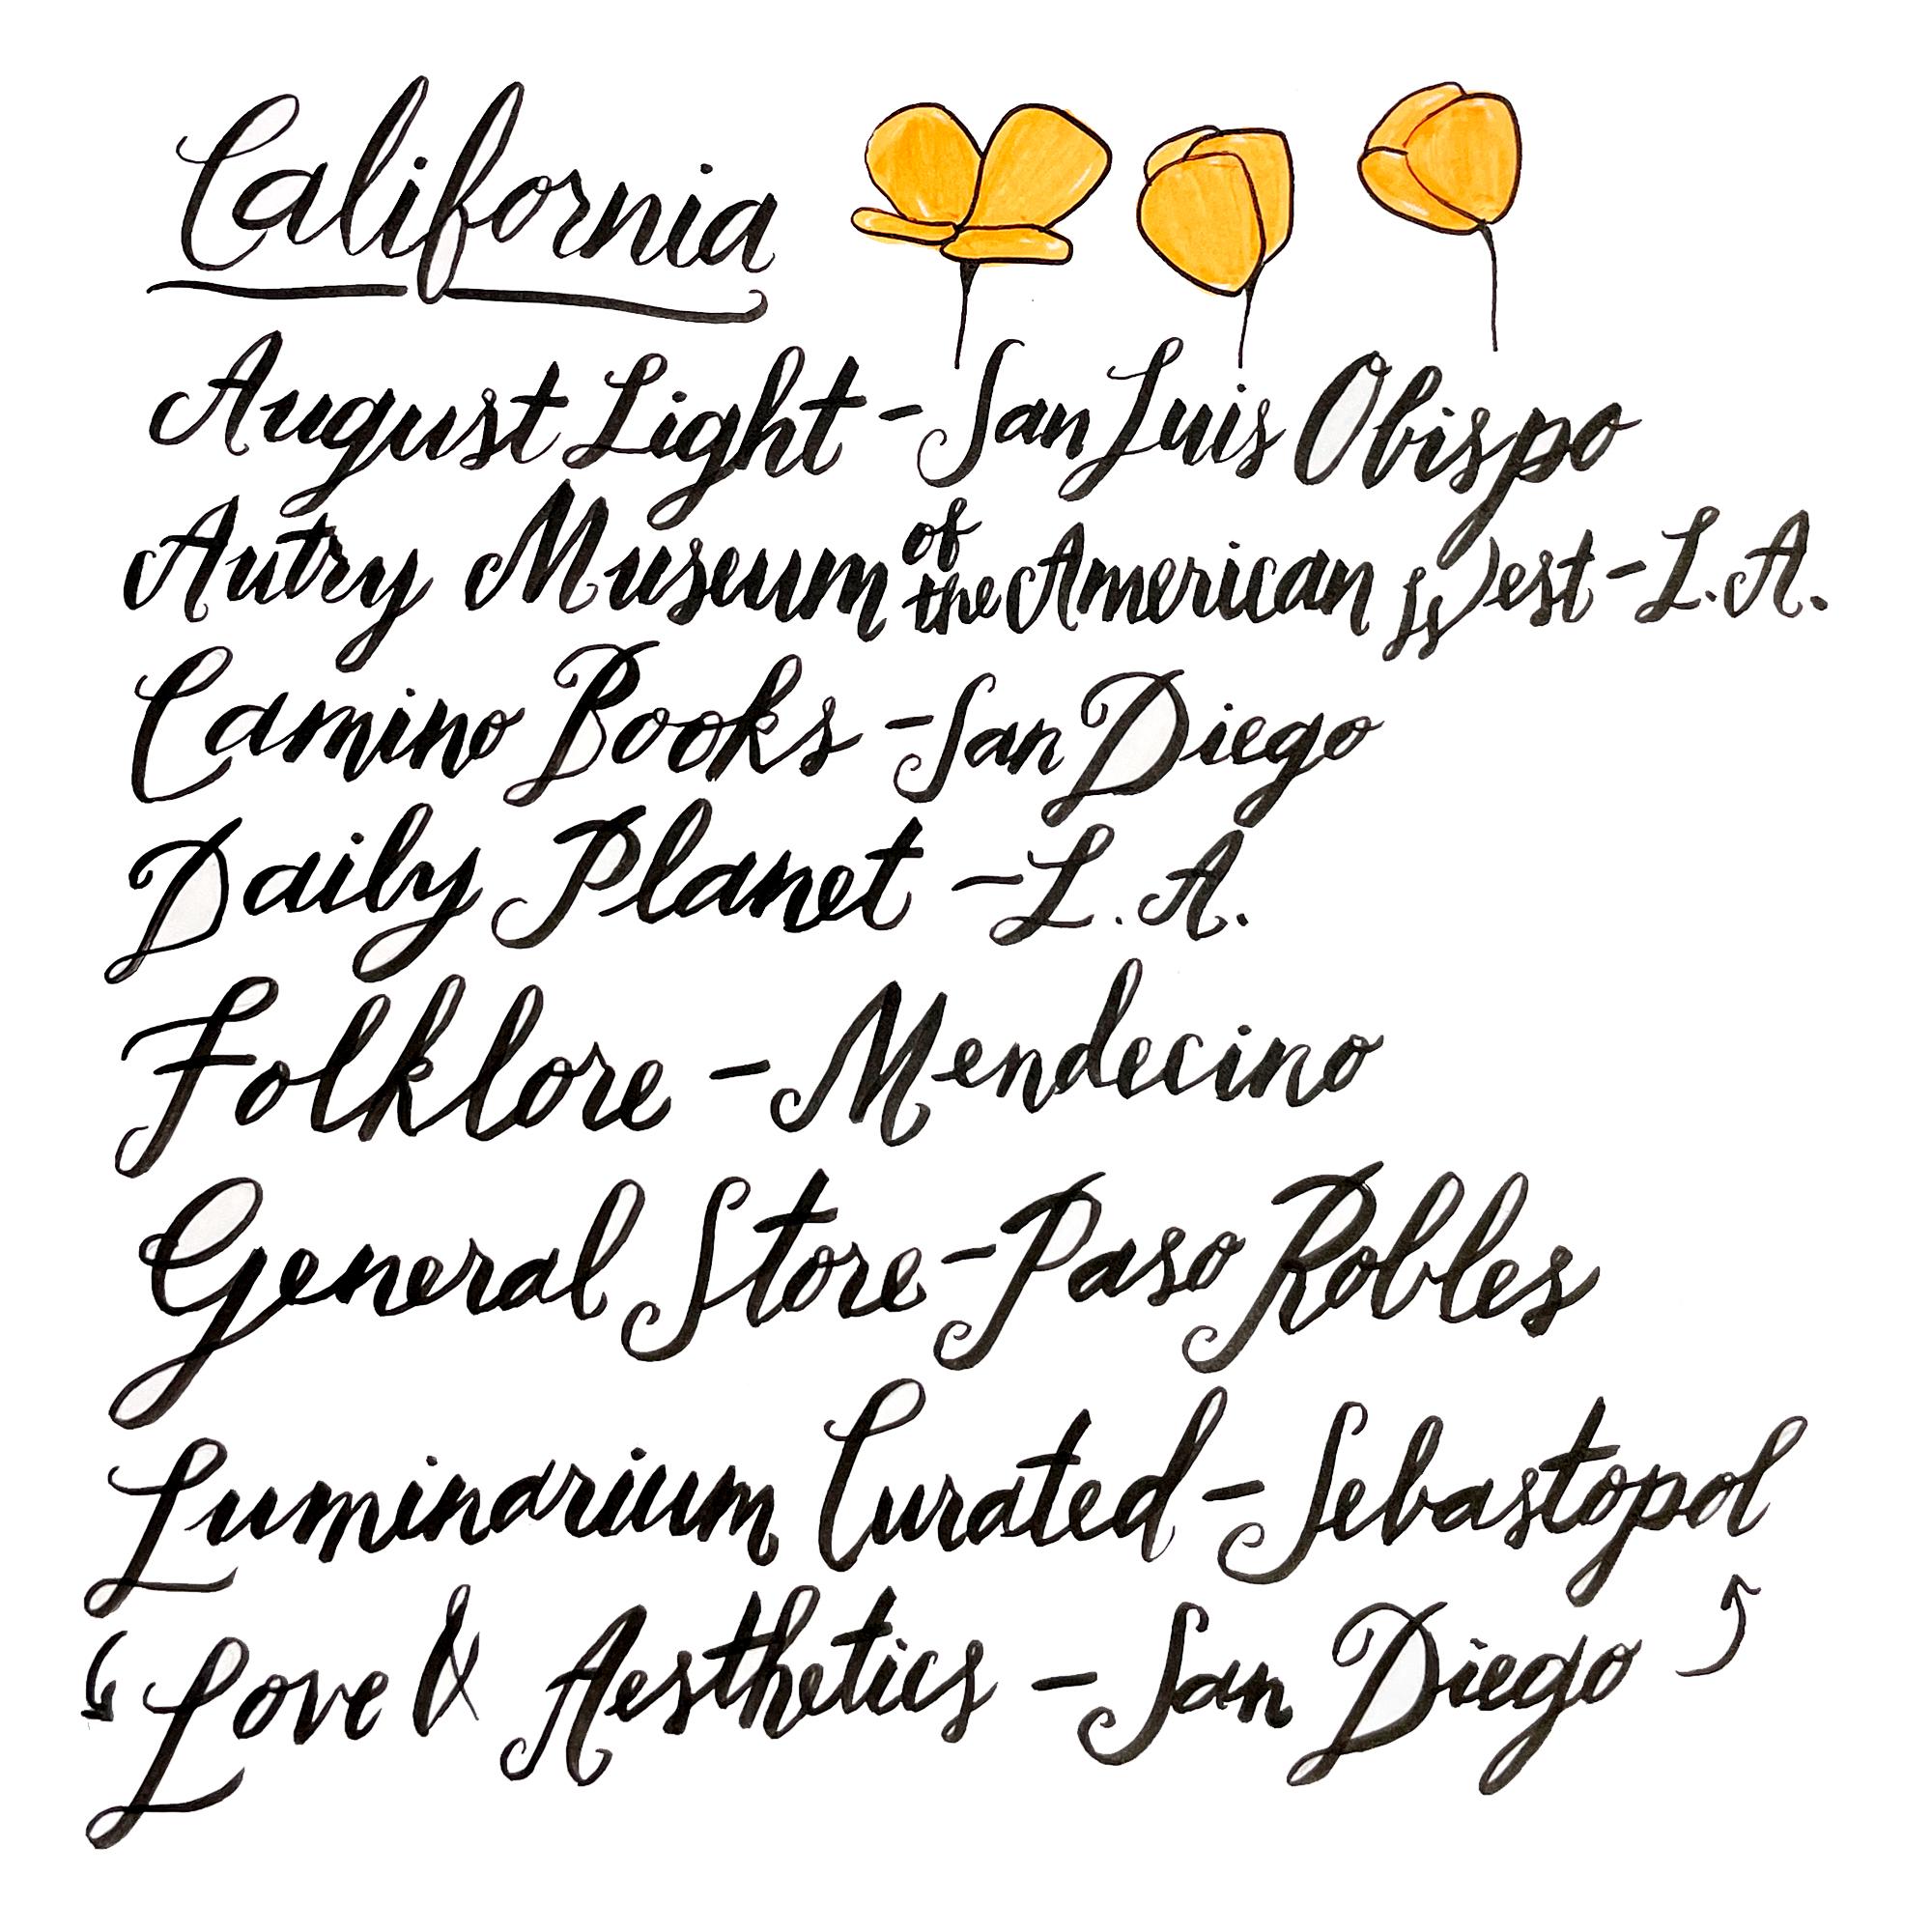 California
August Light - San Luis Obispo
Autry Museum of the American West - L.A.
Camino Books - San Diego
Daily Planet - L.A.
Folklore - Mendecino
General Store - Paso Robles
Luminarium Curated - Sebastopol
Love & Aesthetics - San Diego